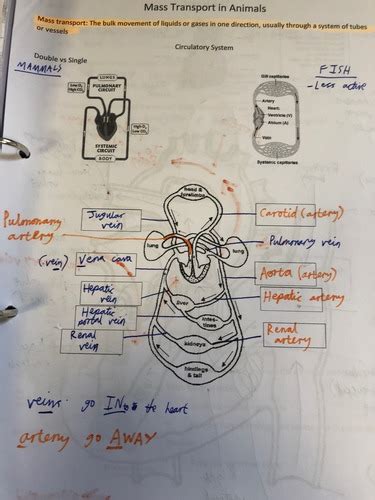 Mass Transport in Animals
Mass transport: The bulk movement of liquids or gases in one direction, usually through a system of tubes
or vessels
Circulatory System
Double vs Single
MAMMALS
FISH
- Less active
LUNGS
Low O₂
High CO₂
PULMONARY
CIRCUIT
High O₂
Low CO₂
SYSTEMIC
CIRCUIT
BODY
Gill capillaries
Artery
Heart:
Ventricle (V)
Atrium (A)
Vein
Systemic capillaries
head &
forelimbs
Pulmonary
artery
Jugular
vein
Carotid (artery)
lung
lung
Pulmonary vein
(vein) Vena cava
Aorta (artery)
Hepatic
vein
liver
Hepatic artery
Hepatic
portal vein
intes-
tines
Renal
vein
kidneys
Renal
artery
hindlegs
& tail
veins: go IN to the heart
artery go AWAY